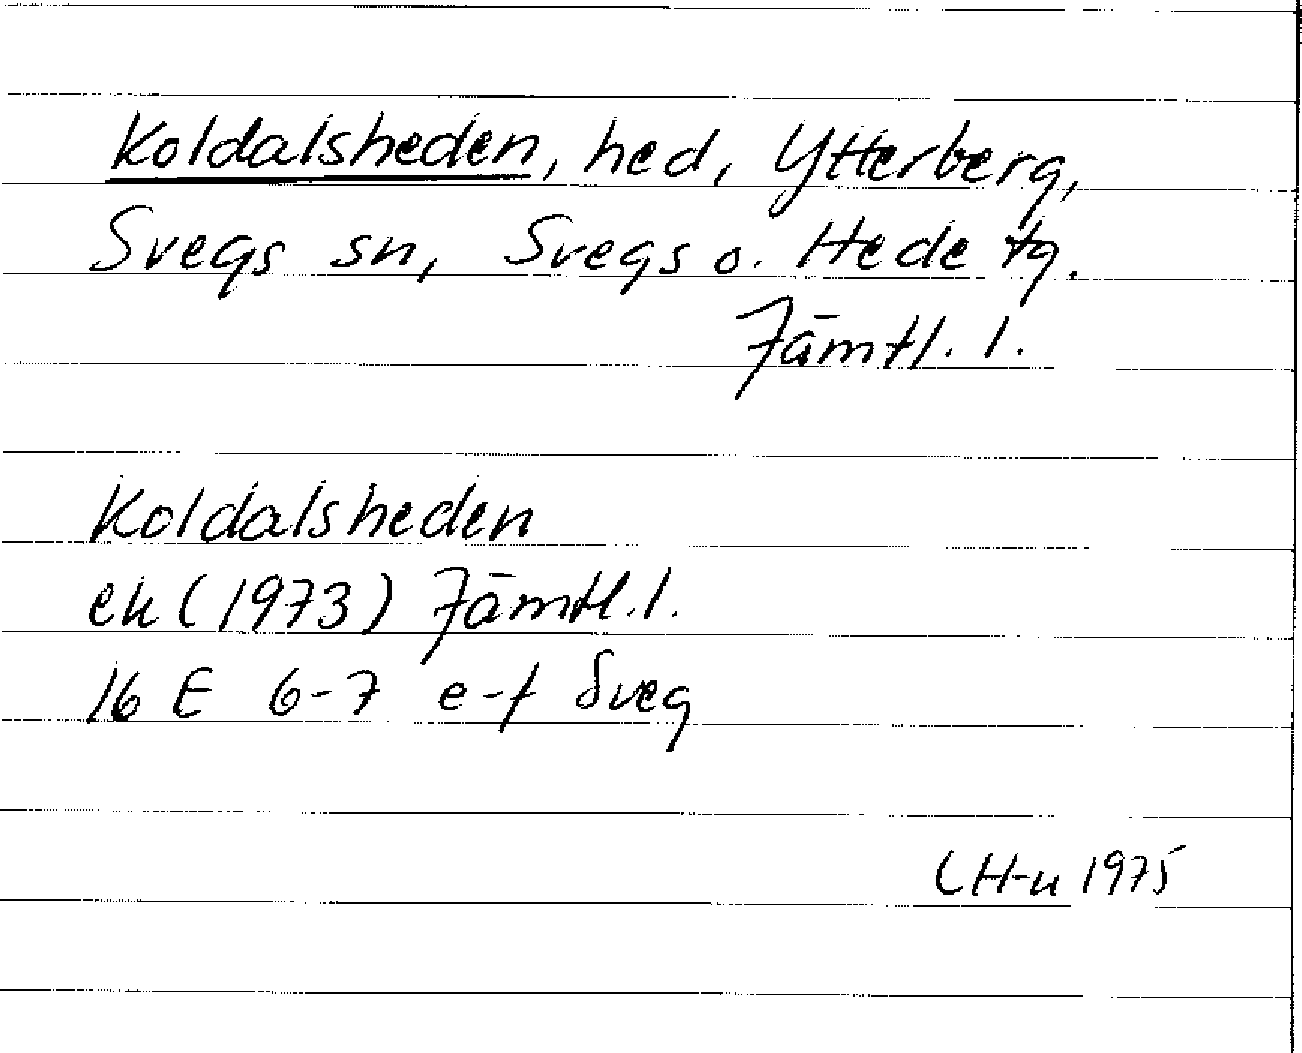 Koldalsheden, hed, Ytterberg,
Svegs sn, Svegs o. Hede tg.
Jämtl. l.
Koldalsheden
ek (1973) Jämtl. l.
16 E 6-7 e-f Sveg
CH-n 1975